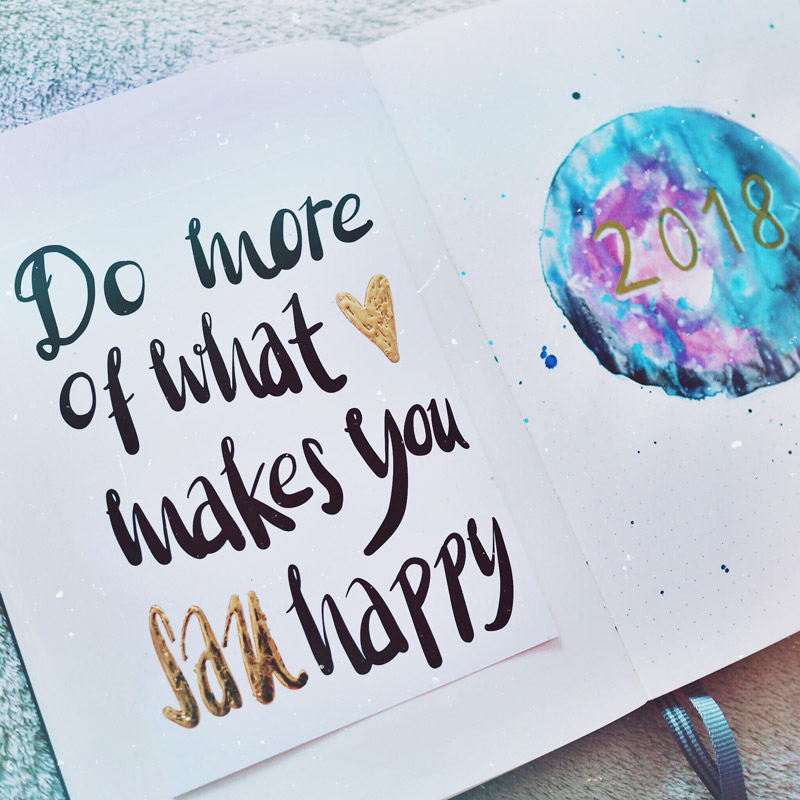 Do more
of what
makes you
happy
2018